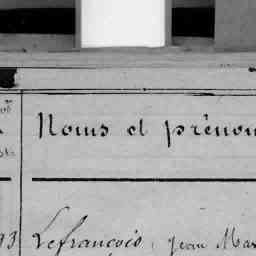 Noms et prénom
93 Lefrançois, Jean Mar